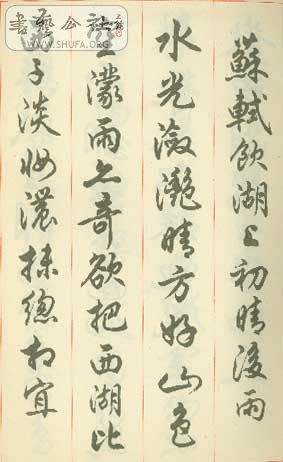 蘇軾飲湖上初晴後雨
水光瀲灩晴方好山色
空濛雨亦奇欲把西湖比
西子淡妝濃抹總相宜
書藝公社
WWW.SHUFA.ORG